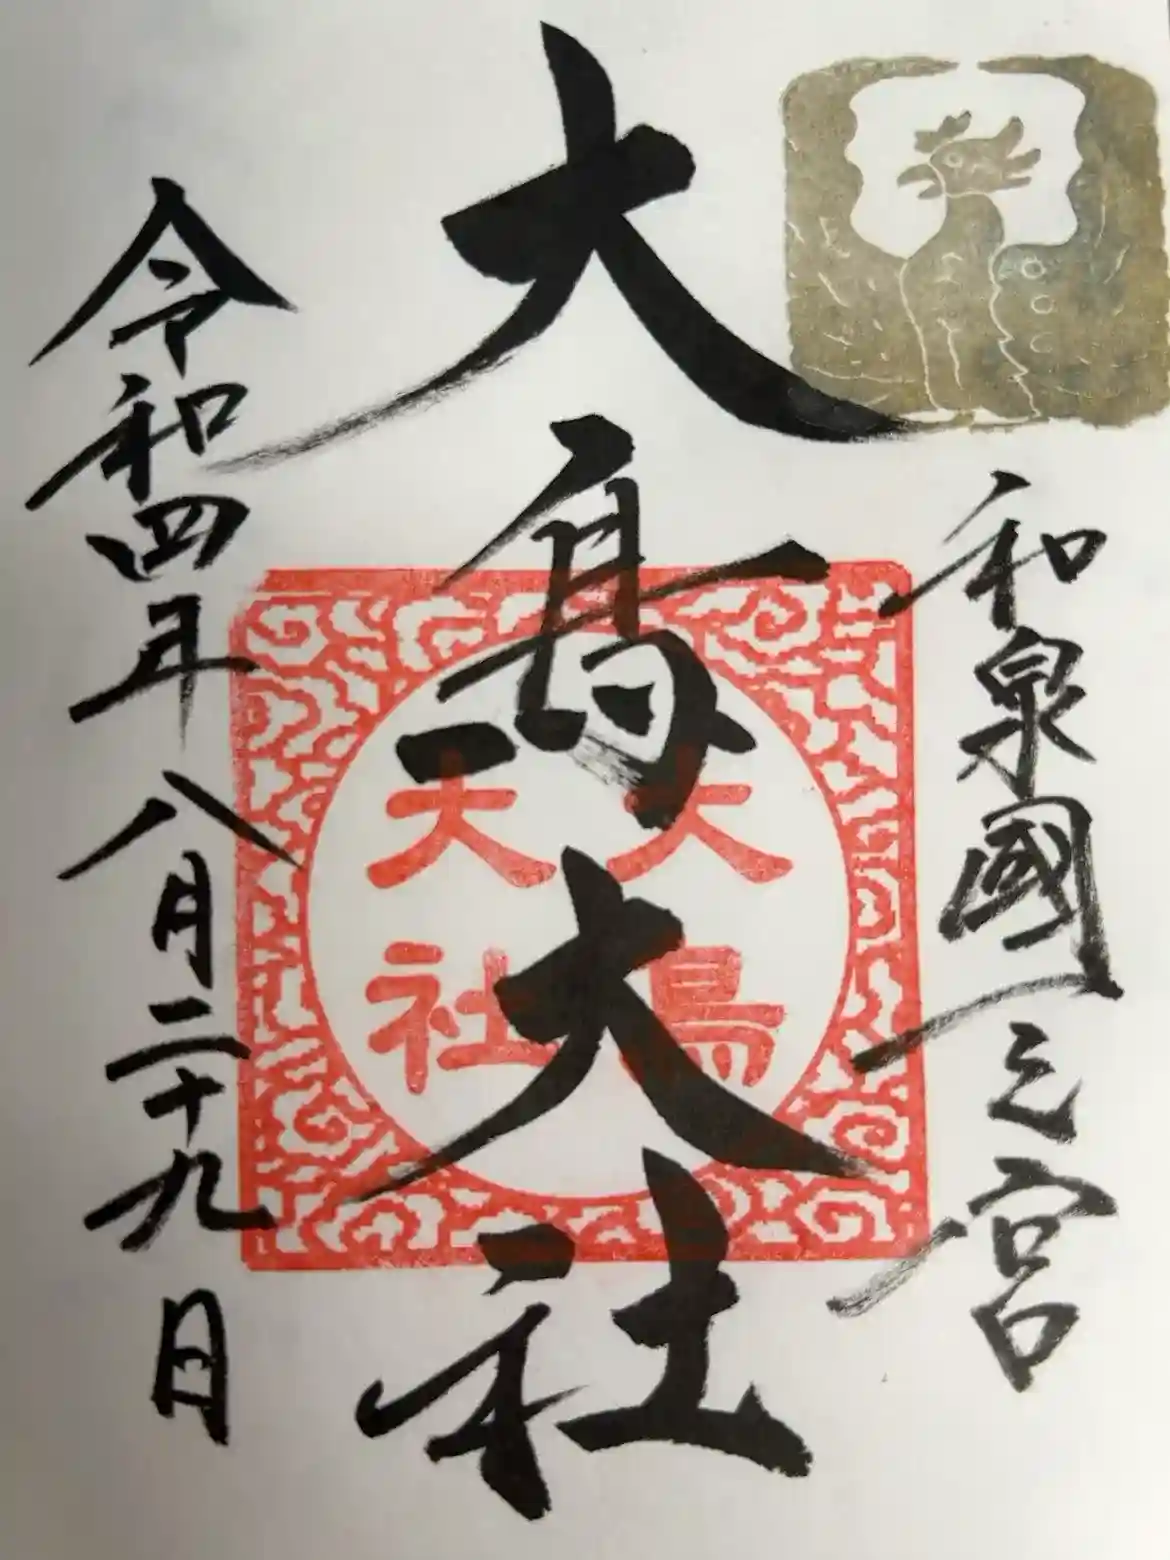 和泉國一之宮
大鳥大社
令和四年八月二十九日
大鳥
大社